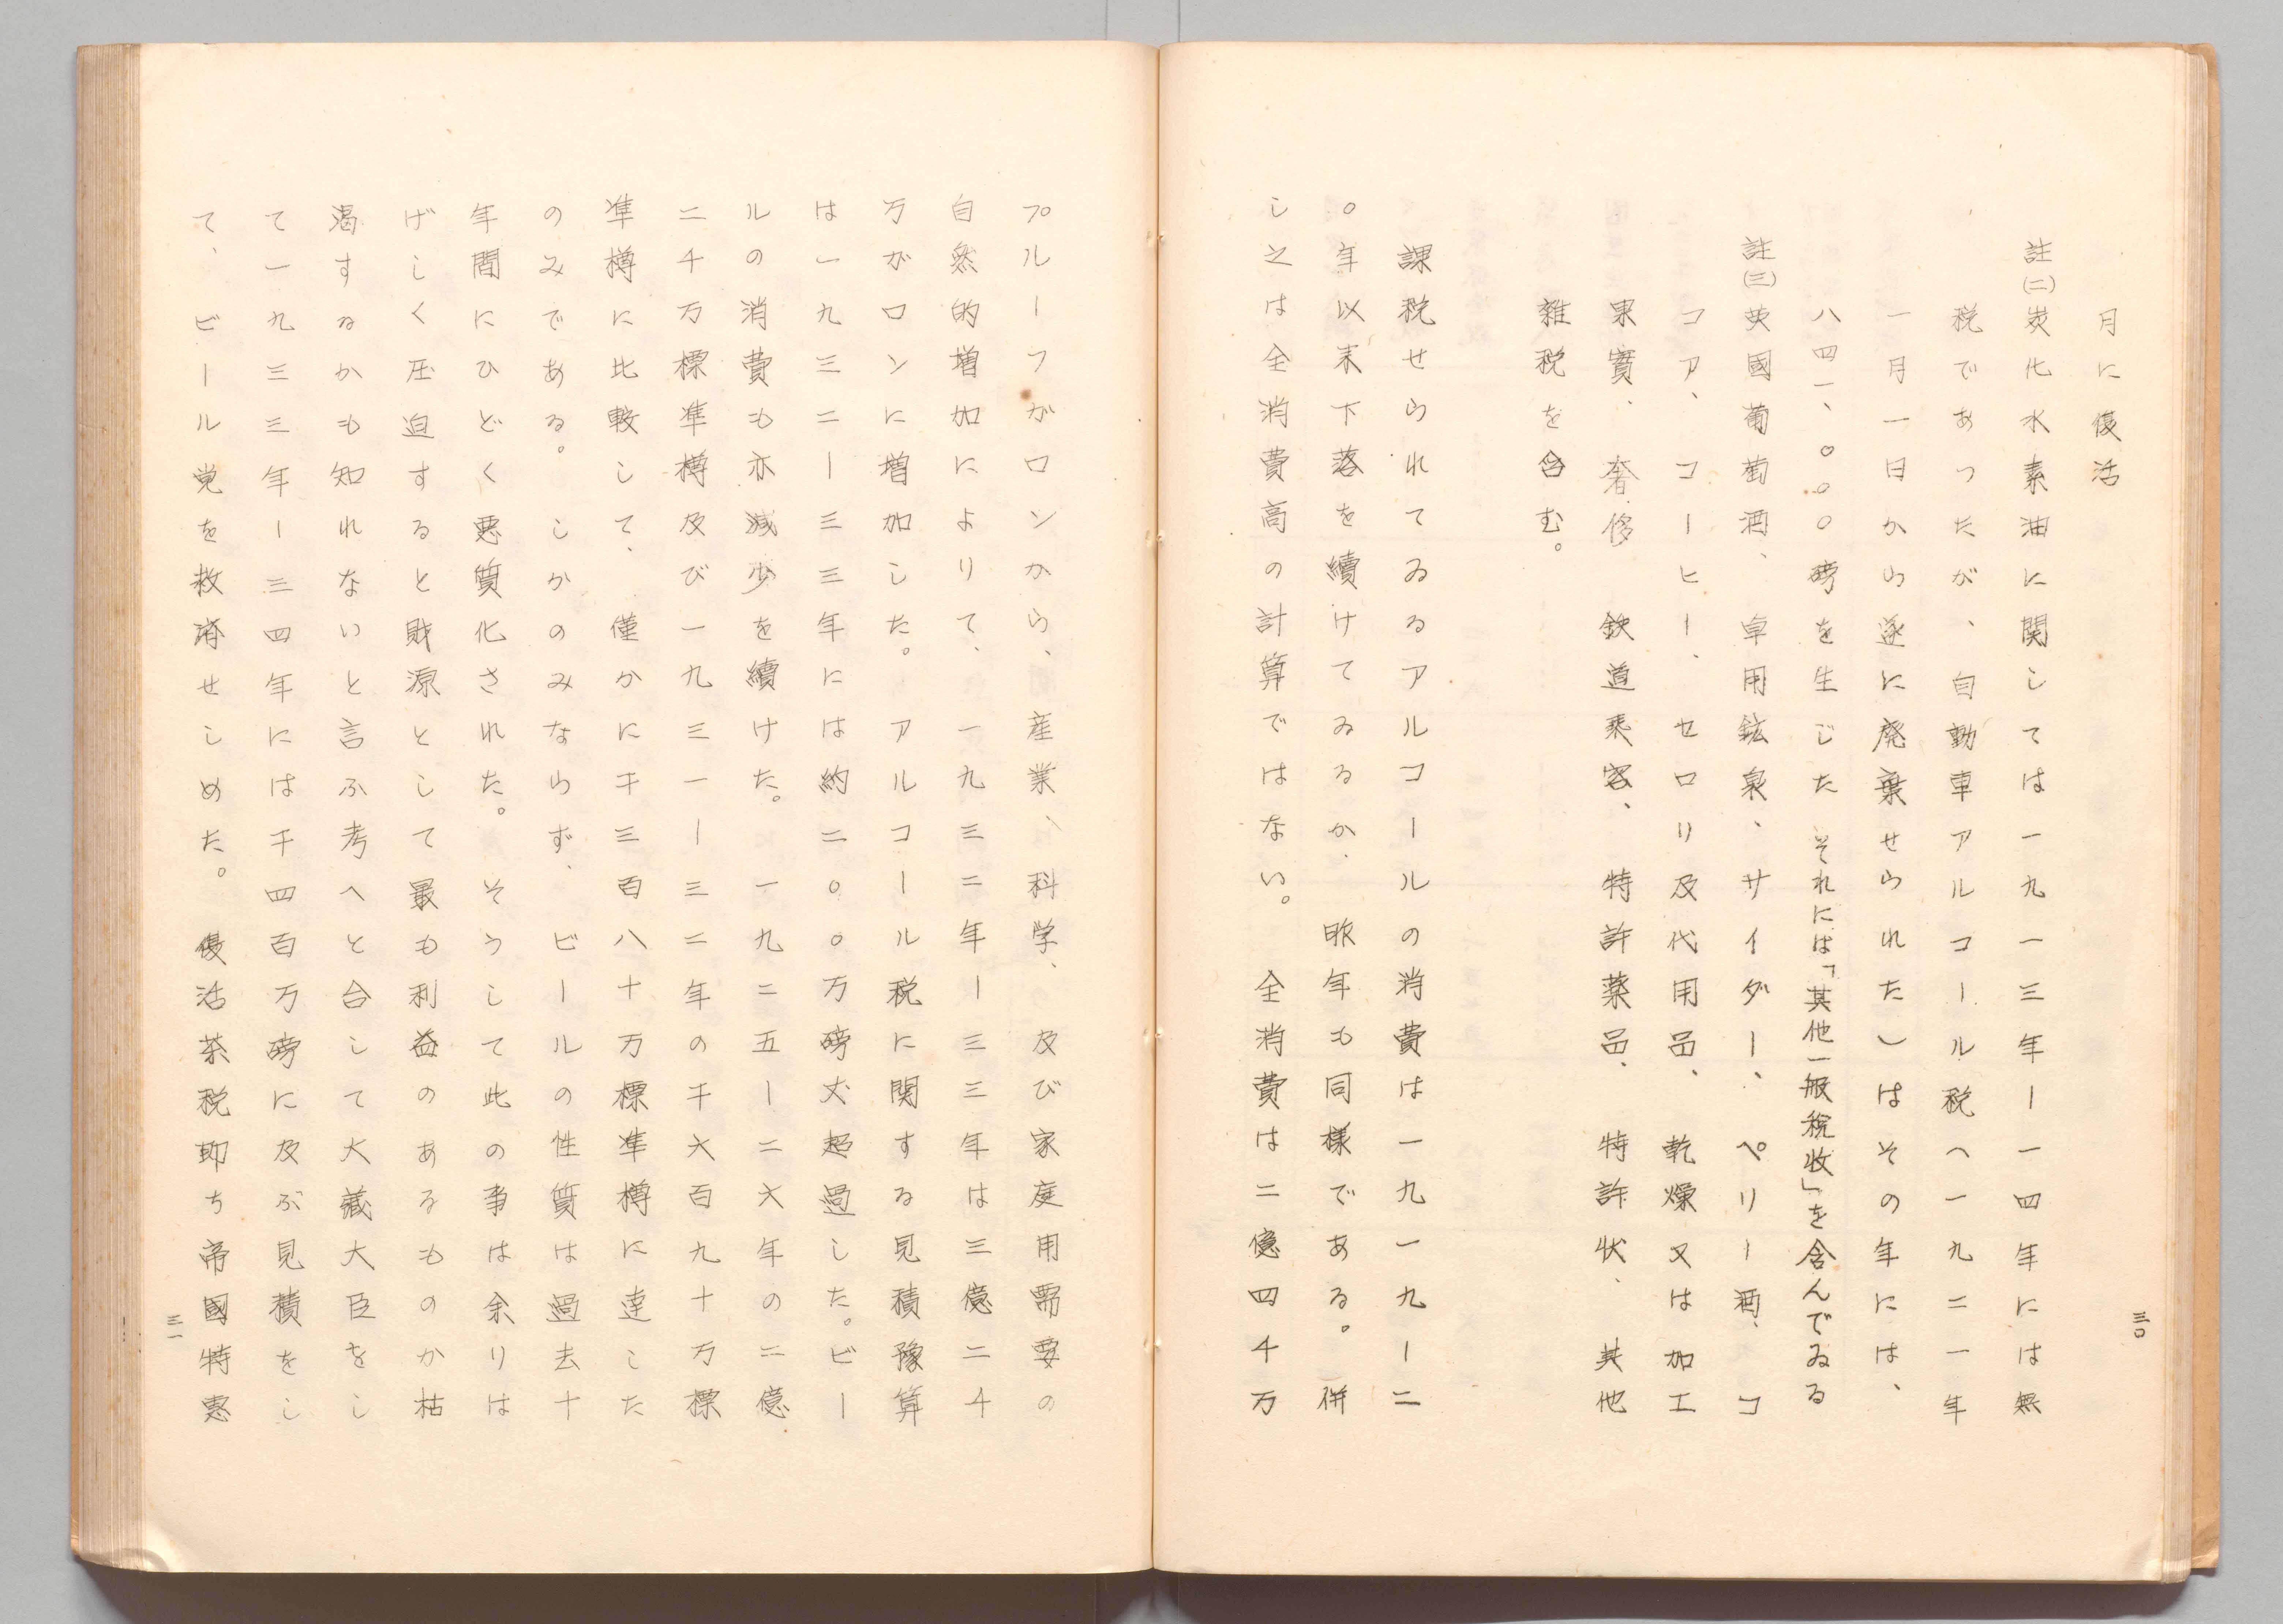 三〇
月に復活
註(二)炭化水素油に関しては一九一三年ー一四年には無
税であつたが、自動車アルコール税へ一九二一年
一月一日から遂に廃棄せられた)はその年には、
八四一、〇〇〇磅を生じた それには「其他一般税收」を含んでゐる
註(三)英國葡萄酒、卓用鉱泉、サイダー、ペリー酒、コ
コア、コーヒー、セロリ及代用品、乾燥又は加工
果實、奢侈 鉄道乘客、特許薬品、特許状、其他
雑税を含む。
課税せられてゐるアルコールの消費は一九一九ー二
〇年以末下落を續けてゐるか、昨年も同様である。併
し之は全消費高の計算ではない。 全消費は二億四千万
プルーフガロンから、産業、科学、及び家庭用需要の
自然的増加によりて、一九三二年ー三三年は三億二千
万ガロンに増加した。アルコール税に関する見積豫算
は一九三二ー三三年には約二〇〇万磅丈超過した。ビー
ルの消費も亦減少を續けた。一九二五ー二六年の二億
二千万標準樽及び一九三一ー三二年の千六百九十万標
準樽に比較して、僅かに千三百八十万標準樽に達した
のみである。しかのみならず、ビールの性質は過去十
年間にひどく悪質化された。そうして此の事は余りは
げしく圧迫すると財源として最も利益のあるものか枯
渇するかも知れないと言ふ考へと合して大藏大臣をし
て一九三三年ー三四年には千四百万磅に及ぶ見積をし
て、ビール党を救済せしめた。 復活茶税即ち帝國特惠
三一